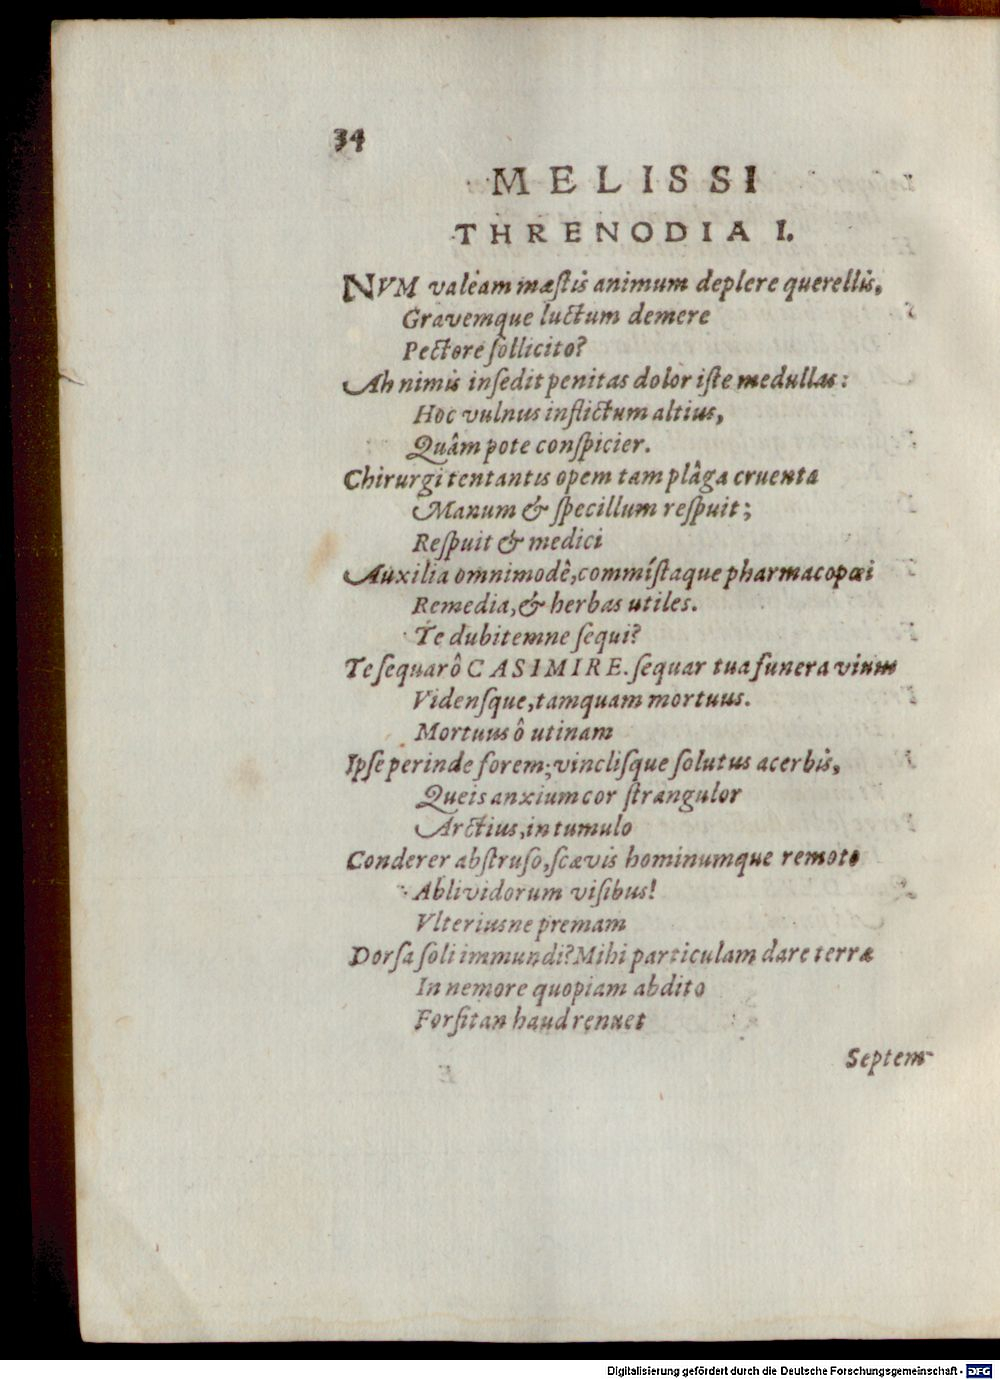 34
MELISSI
THRENODIA I.
NVM valeam mæstis animum deplere querellis,
Gravemque luctum demere
Pectore sollicito?
Ah nimis insedit penitas dolor iste medullas:
Hoc vulnus inflictum altius,
Quâm pote conspicier.
Chirurgi tentantis opem tam plâga cruenta
Manum & specillum respuit;
Respuit & medici
Auxilia omnimodê, commístaque pharmacopœi
Remedia, & herbas utiles.
Te dubitemne sequi?
Te sequar ô CASIMIRE. sequar tua funera vivus
Vidensque, tamquam mortuus.
Mortuus ô utinam
Ipse perinde forem; vinclisque solutus acerbis,
Queis anxium cor strangulor
Arctius, in tumulo
Conderer abstruso, scævis hominumque remoto
Ab lividorum visibus!
Vlteriusne premam
Dorsa soli immundi? Mihi particulam dare terræ
In nemore quopiam abdito
Forsitan haud renuet
Septem-
Digitalisierung gefördert durch die Deutsche Forschungsgemeinschaft - DFG